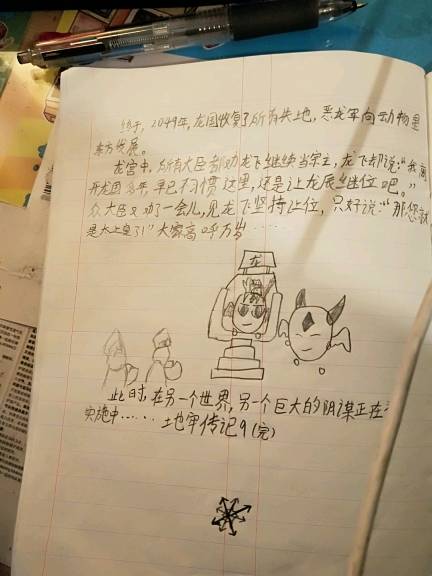 终于，2049年，龙国收复了所有失地，恶龙军向动物星
东方发展。
龙宫中，所有大臣都劝龙飞继续当宗主，龙飞却说："我离
开龙国多年，早已习惯这里，还是让龙辰继位吧。"
众大臣又劝了一会儿，见龙飞坚持让位，只好说："那您就
是太上皇了!"大家高呼万岁……
龙
此时，在另一个世界，另一个巨大的阴谋正在
实施中……地牢传记9(完)